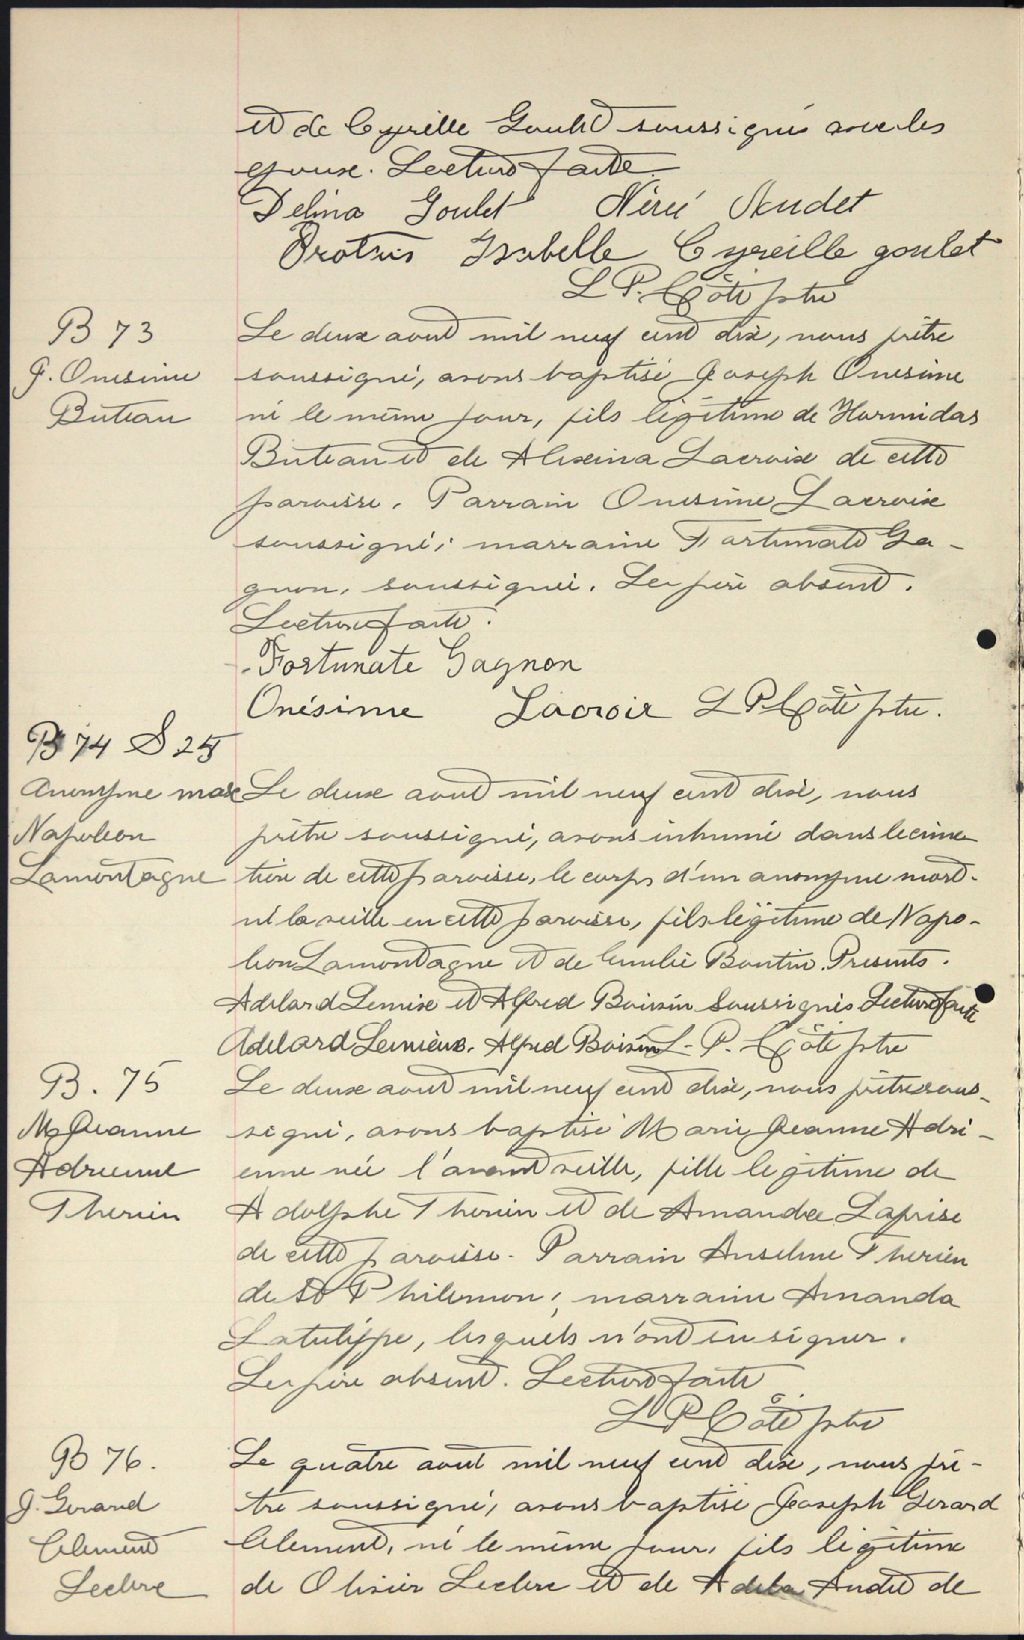 et de Cyrille Goulet soussigné avec les
epoux. Lecture faite.
Delina Goulet Néré Audet
Protais Isabelle Cyreille goulet
L P. Côté ptre
B 73
J. Onesime
Buteau
Le deux aout mil neuf cent dix, nous prêtre
soussigné, avons baptisé Joseph Onesime
né le même jour, fils légitime de Hormidas
Buteau et de Alexina Lacroix de cette
paroisse. Parrain Onesime Lacroix
soussigné; marraine Fortunate Ga-
gnon, soussignée. Le père absent.
Lecture faite.
Fortunate Gagnon
Onésime Lacroix L P Côté ptre.
B 74 S 25
Anonyme masc
Napoleon
Lamontagne
Le deux aout mil neuf cent dix, nous
prêtre soussigné, avons inhumé dans le cime
tière de cette paroisse, le corps d'un anonyme mort-
né la veille en cette paroisse, fils légitime de Napo-
leon Lamontagne et de Emilie Boutin. Presents.
Adelard Lemieux et Alfred Boivin Soussignés Lecture faite
Adelard Lemieux. Alfred Boivin L. P. Côté ptre
B. 75
M Jeanne
Adrienne
Therien
Le deux aout mil neuf cent dix, nous prêtre sous-
signé, avons baptisé Marie Jeanne Adri-
enne née l'avant veille, fille legitime de
Adolphe Therien et de Amanda Laprise
de cette paroisse. Parrain Anselme Therien
de St Philemon; marraine Amanda
Latulippe, lesquels n'ont su signer.
Le père absent. Lecture faite
L P Côté ptre
B 76.
J. Gerard
Clement
Leclerc
Le quatre aout mil neuf cent dix, nous prê-
tre soussigné, avons baptisé Joseph Gerard
Clement, né le même jour, fils légitime
de Olivier Leclerc et de Adela Audet de